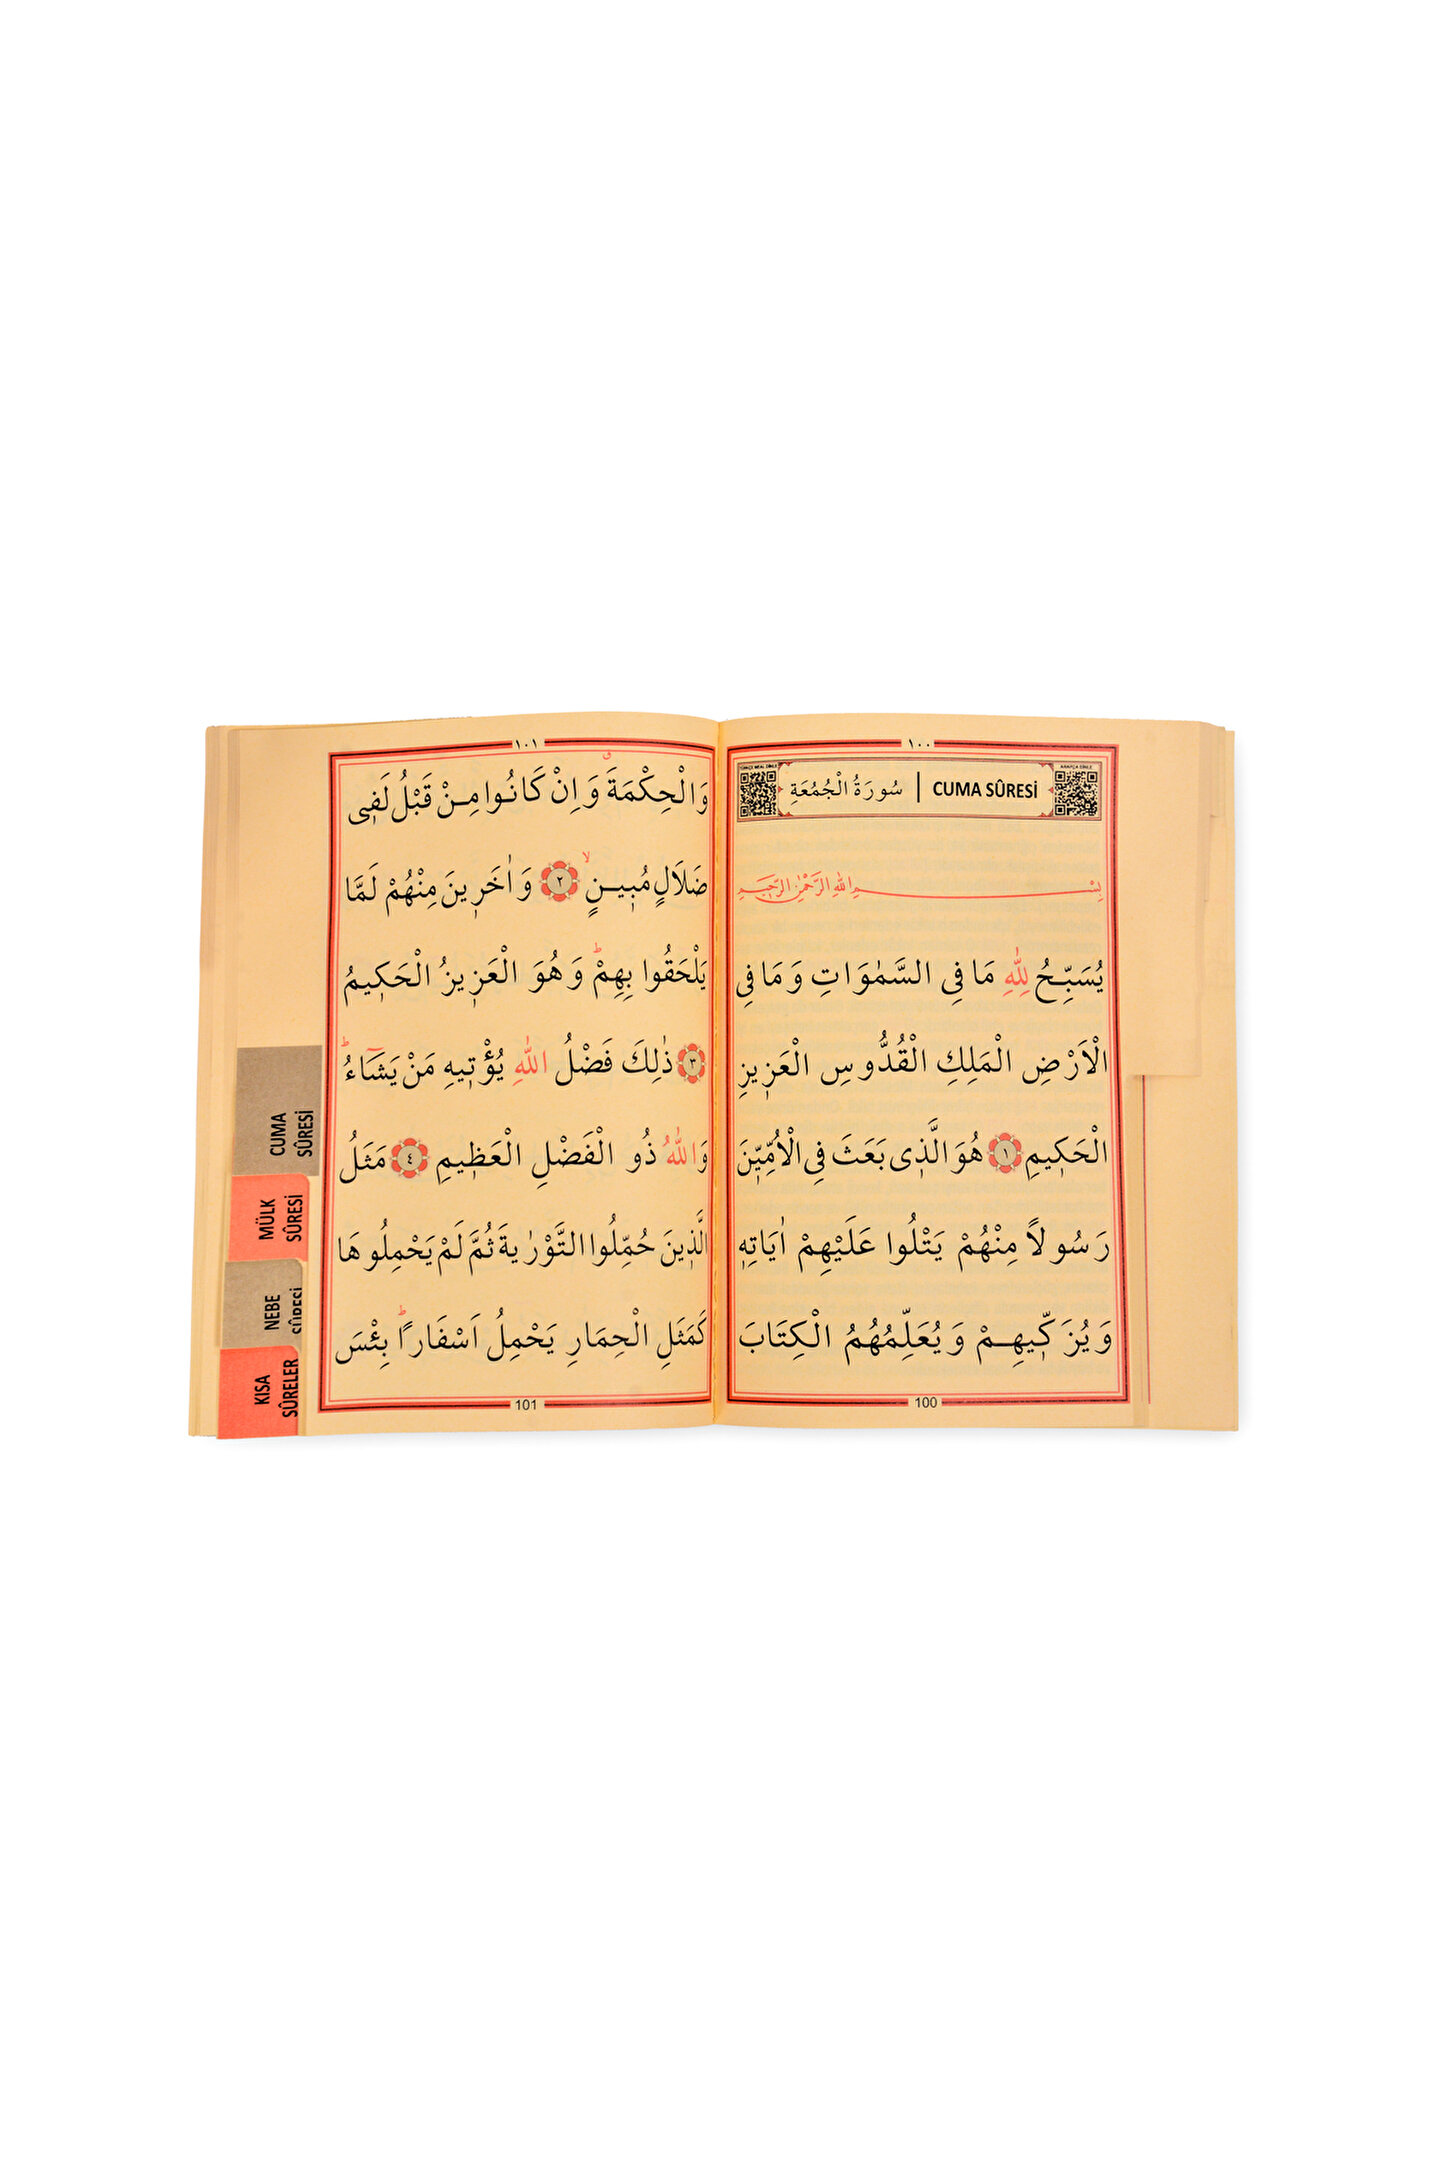 ١٠٠
TÜRKÇE MEAL DİNLE
سُورَةُ الْجُمُعَةِ | CUMA SÛRESİ
ARAPÇA DİNLE
بِسْمِ اللهِ الرَّحْمٰنِ الرَّحِيمِ
يُسَبِّحُ لِلّٰهِ مَا فِي السَّمٰوَاتِ وَمَا فِي
الْاَرْضِ الْمَلِكِ الْقُدُّوسِ الْعَزِيزِ
الْحَكِيمِ ﴿١﴾ هُوَ الَّذِي بَعَثَ فِي الْاُمِّيِّنَ
رَسُولاً مِنْهُمْ يَتْلُوا عَلَيْهِمْ اٰيَاتِهِ
وَيُزَكِّيهِمْ وَيُعَلِّمُهُمُ الْكِتَابَ
100
١٠١
وَالْحِكْمَةَۗ وَاِنْ كَانُوا مِنْ قَبْلُ لَفِي
ضَلَالٍ مُبِينٍۙ ﴿٢﴾ وَاٰخَرِينَ مِنْهُمْ لَمَّا
يَلْحَقُوا بِهِمْۜ وَهُوَ الْعَزِيزُ الْحَكِيمُ
﴿٣﴾ ذٰلِكَ فَضْلُ اللّٰهِ يُؤْتِيهِ مَنْ يَشَٓاءُۜ
وَاللّٰهُ ذُو الْفَضْلِ الْعَظِيمِ ﴿٤﴾ مَثَلُ
الَّذِينَ حُمِّلُوا التَّوْرٰيةَ ثُمَّ لَمْ يَحْمِلُوهَا
كَمَثَلِ الْحِمَارِ يَحْمِلُ اَسْفَاراًۜ بِئْسَ
101
CUMA
SÛRESİ
MÜLK
SÛRESİ
NEBE
SÛRESİ
KISA
SÛRELER